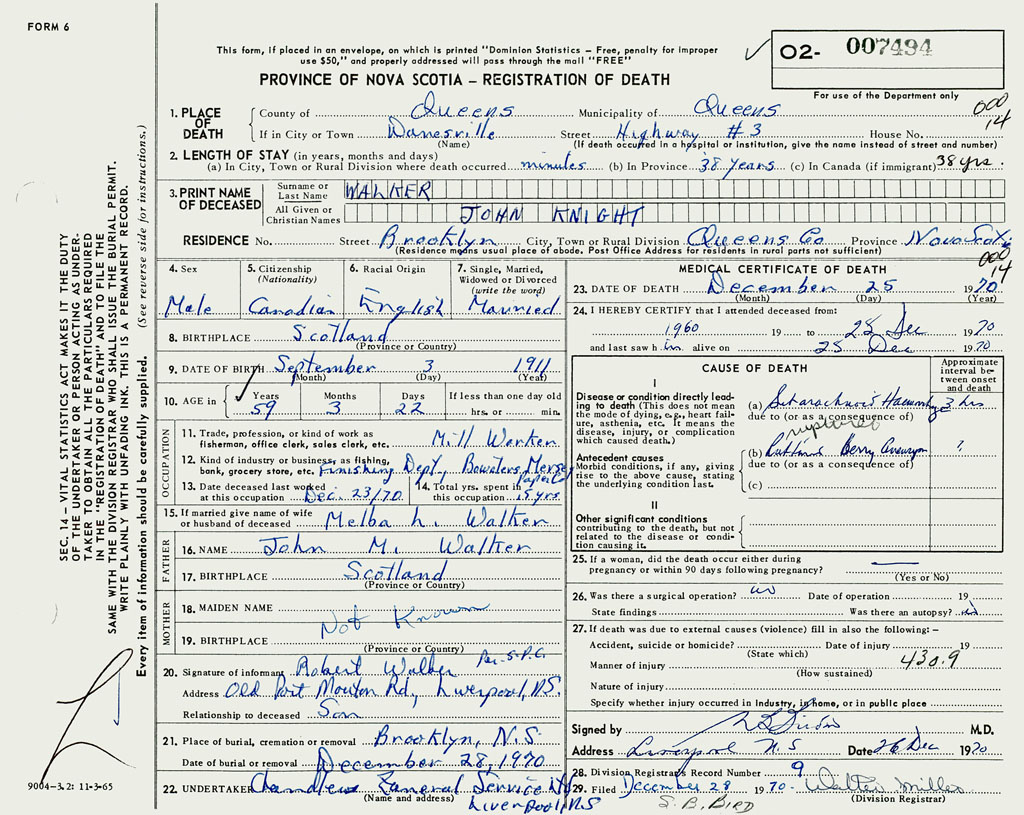 FORM 6
This form, if placed in an envelope, on which is printed "Dominion Statistics – Free, penalty for improper
use $50," and properly addressed will pass through the mail "FREE"
PROVINCE OF NOVA SCOTIA – REGISTRATION OF DEATH
O2- 007494
For use of the Department only
000
14
1. PLACE OF DEATH
County of Queens Municipality of Queens
If in City or Town Danesville Street Highway #3 House No.
(Name) (If death occurred in a hospital or institution, give the name instead of street and number)
2. LENGTH OF STAY (in years, months and days)
(a) In City, Town or Rural Division where death occurred minutes (b) In Province 38 years (c) In Canada (if immigrant) 38 yrs.
3. PRINT NAME OF DECEASED
Surname or Last Name WALKER
All Given or Christian Names JOHN KNIGHT
RESIDENCE No. Street Brooklyn City, Town or Rural Division Queens Co Province Nova Scotia
(Residence means usual place of abode. Post Office Address for residents in rural parts not sufficient)
000
14
4. Sex
Male
5. Citizenship
(Nationality)
Canadian
6. Racial Origin
English
7. Single, Married,
Widowed or Divorced
(write the word)
Married
8. BIRTHPLACE Scotland
(Province or Country)
9. DATE OF BIRTH September 3 1911
(Month) (Day) (Year)
10. AGE in
Years Months Days If less than one day old
59 3 22 hrs. or min.
OCCUPATION
11. Trade, profession, or kind of work as
fisherman, office clerk, sales clerk, etc. Mill Worker
12. Kind of industry or business, as fishing,
bank, grocery store, etc. Finishing Dept, Bowaters Mersey
Paper Co
13. Date deceased last worked
at this occupation Dec. 23/70
14. Total yrs. spent in
this occupation 15 yrs.
15. If married give name of wife
or husband of deceased Melba L. Walker
FATHER
16. NAME John M. Walker
17. BIRTHPLACE Scotland
(Province or Country)
MOTHER
18. MAIDEN NAME
Not Known
19. BIRTHPLACE
(Province or Country)
20. Signature of informant Robert Walker Per. S.P.C.
Address Old Port Mouton Rd, Liverpool, N.S.
Relationship to deceased Son
21. Place of burial, cremation or removal Brooklyn, N.S.
Date of burial or removal December 28, 1970
22. UNDERTAKER Chandlers Funeral Service Ltd
(Name and address) Liverpool NS
MEDICAL CERTIFICATE OF DEATH
23. DATE OF DEATH December 25 1970
(Month) (Day) (Year)
24. I HEREBY CERTIFY that I attended deceased from:
1960 19 to 25 Dec 1970
and last saw him alive on 25 Dec 1970
CAUSE OF DEATH
Approximate
interval be-
tween onset
and death
I
Disease or condition directly lead-
ing to death (This does not mean
the mode of dying, e.g., heart fail-
ure, asthenia, etc. It means the
disease, injury, or complication
which caused death.)
(a) Subarachnoid Haemorrhage 3 hrs
due to (or as a consequence of)
ruptured
Antecedent causes
Morbid conditions, if any, giving
rise to the above cause, stating
the underlying condition last.
(b) Berry Aneurysm ?
due to (or as a consequence of)
(c)
II
Other significant conditions
contributing to the death, but not
related to the disease or condi-
tion causing it.
25. If a woman, did the death occur either during
pregnancy or within 90 days following pregnancy? —
(Yes or No)
26. Was there a surgical operation? no Date of operation 19
State findings Was there an autopsy? no
27. If death was due to external causes (violence) fill in also the following: –
Accident, suicide or homicide? Date of injury 19
(State which) 430.9
Manner of injury
(How sustained)
Nature of injury
Specify whether injury occurred in industry, in home, or in public place
Signed by M.D.
Address Liverpool N S Date 26 Dec 1970
28. Division Registrar's Record Number 9
29. Filed December 28 1970. Walter Miller
S. B. BIRD (Division Registrar)
SEC. 14 – VITAL STATISTICS ACT MAKES IT THE DUTY
OF THE UNDERTAKER OR PERSON ACTING AS UNDER-
TAKER TO OBTAIN ALL THE PARTICULARS REQUIRED
IN THE "REGISTRATION OF DEATH" AND TO FILE THE
SAME WITH THE DIVISION REGISTRAR WHO SHALL ISSUE THE BURIAL PERMIT.
WRITE PLAINLY WITH UNFADING INK. THIS IS A PERMANENT RECORD.
Every item of information should be carefully supplied. (See reverse side for instructions.)
9004-3.2: 11-3-65